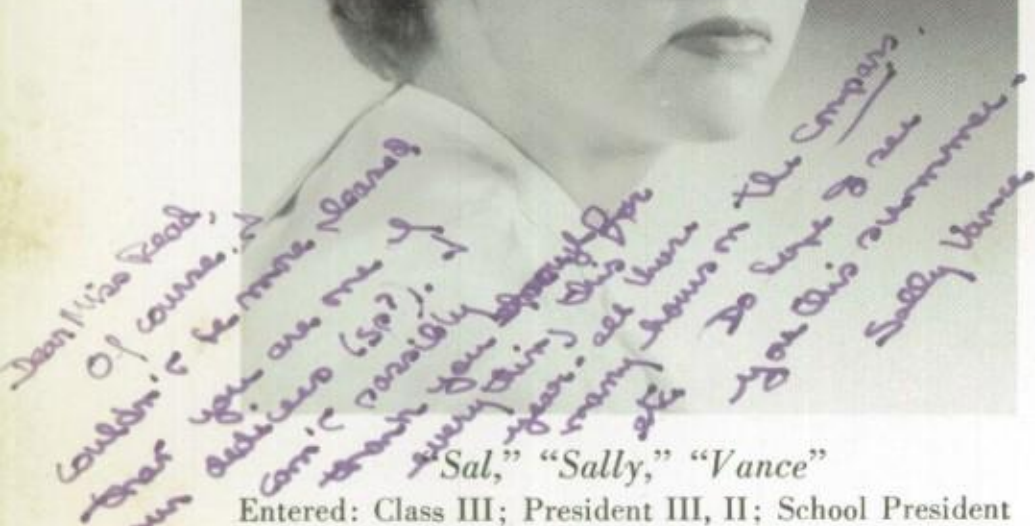 Dear Miss Read,
Of course I
couldn't be more pleased
that you are me I
our dedicee (sp?). I
can't possibly
thank you enough for
everything this
year - all those
many hours on the Compass.
etc. Do hope I see
you this summer.
Sally Vance
"Sal," "Sally," "Vance"
Entered: Class III; President III, II; School President